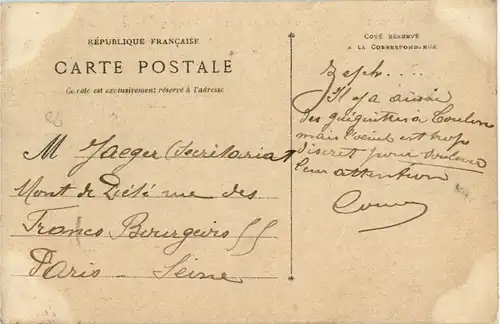 RÉPUBLIQUE FRANÇAISE
CARTE POSTALE
Ce côté est exclusivement réservé à l'adresse
M Jaeger (Secrétariat
Mont de Piété rue des
Francs Bourgeois 55
Paris - Seine
COTÉ RÉSERVÉ
A LA CORRESPONDANCE
Zeph....
Il y a aussi
des guiguittes à Toulon
mais l'œil est trop
discret pour
leur attention